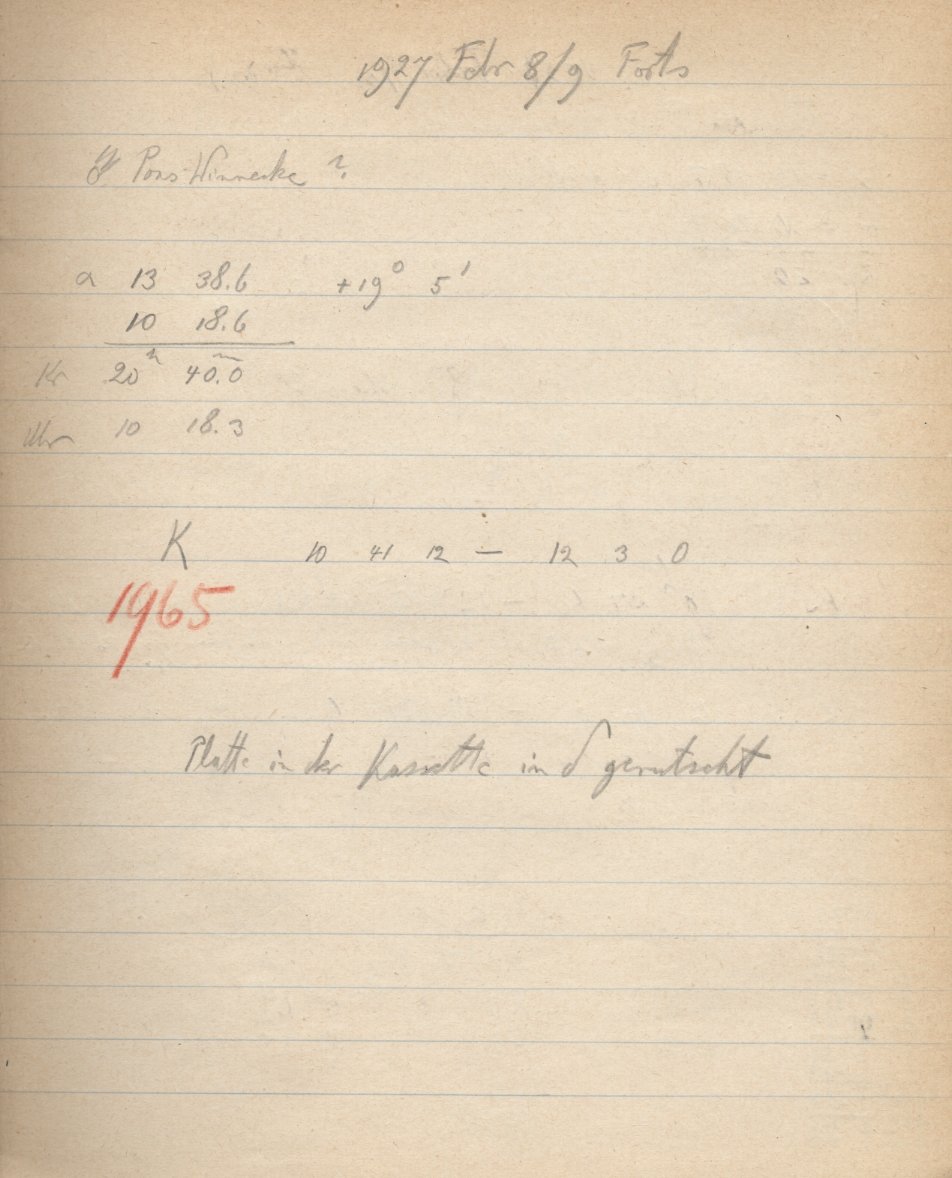 1927 Febr 8/9 Forts
☄ Pons-Winnecke ?
α 13 38.6 +19° 5'
10 18.6
Kr 20ʰ 40.0ᵐ
Uhr 10 18.3
K 10 41 12 — 12 3 0
1965
Platte in der Kassette in δ gerutscht